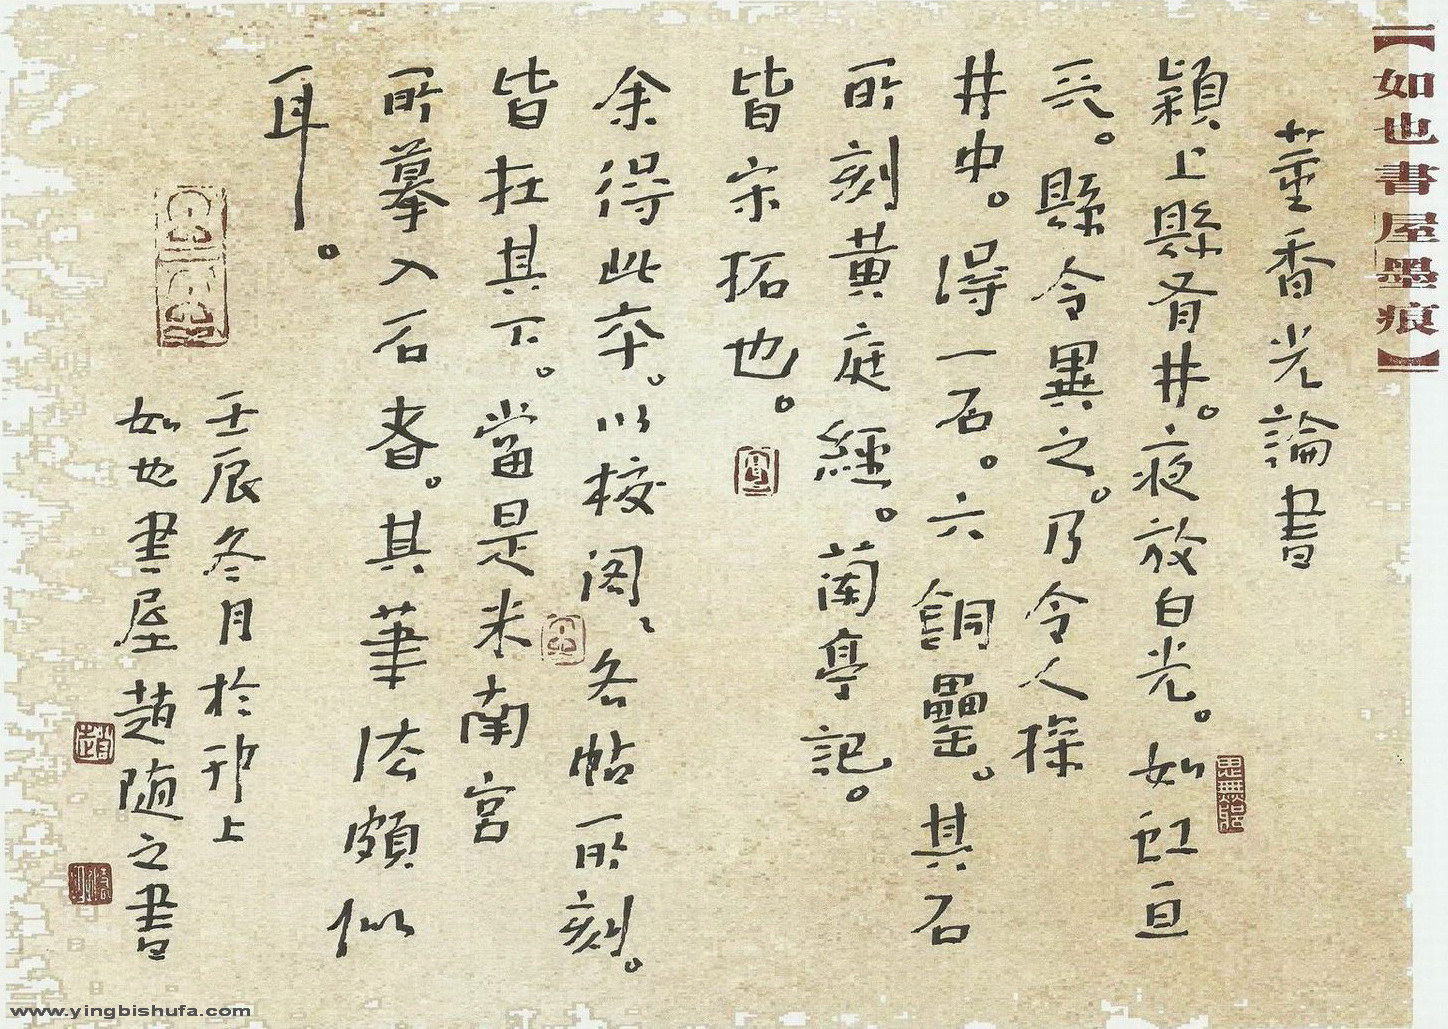 【如也書屋墨痕】
董香光論書
潁上縣有井。夜放白光。如虹亘
天。縣令異之。乃令人探
井中。得一石。六銅罍。其石
所刻黄庭經。蘭亭記。
皆宋拓也。
余得此本。以校阁、各帖所刻。
皆在其下。當是米南宮
所摹入石者。其筆法頗似
耳。
壬辰冬月於邢上
如也書屋趙随之書
趙
www.yingbishufa.com